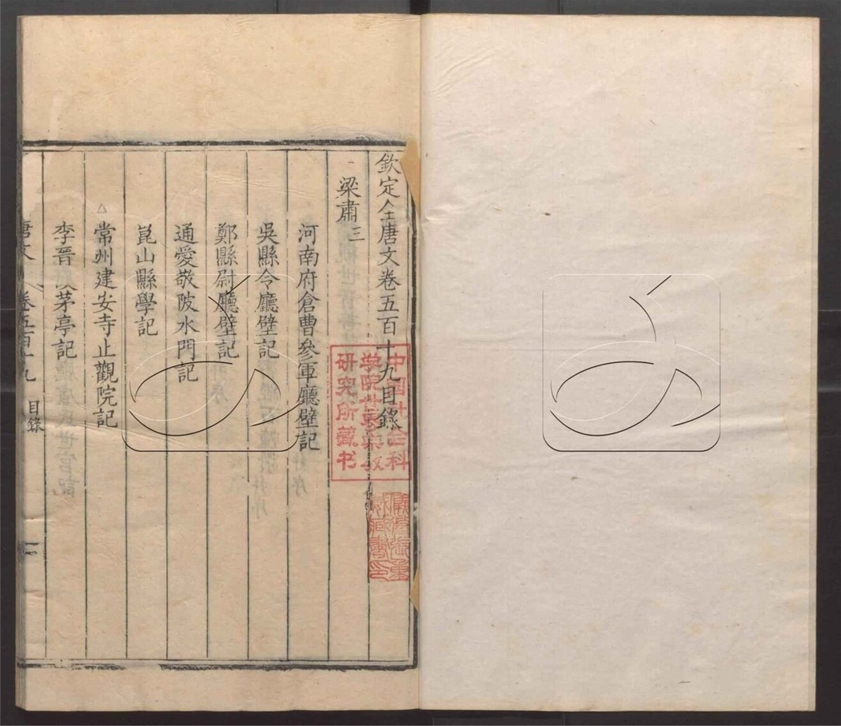 欽定全唐文卷五百十九目錄
梁肅三
河南府倉曹參軍廳壁記
吳縣令廳壁記
鄭縣尉廳壁記
通愛敬陂水門記
崑山縣學記
常州建安寺止觀院記
李晉茅亭記
唐文 卷五百十九 目錄
中国社会科
学院世界宗教
研究所藏书